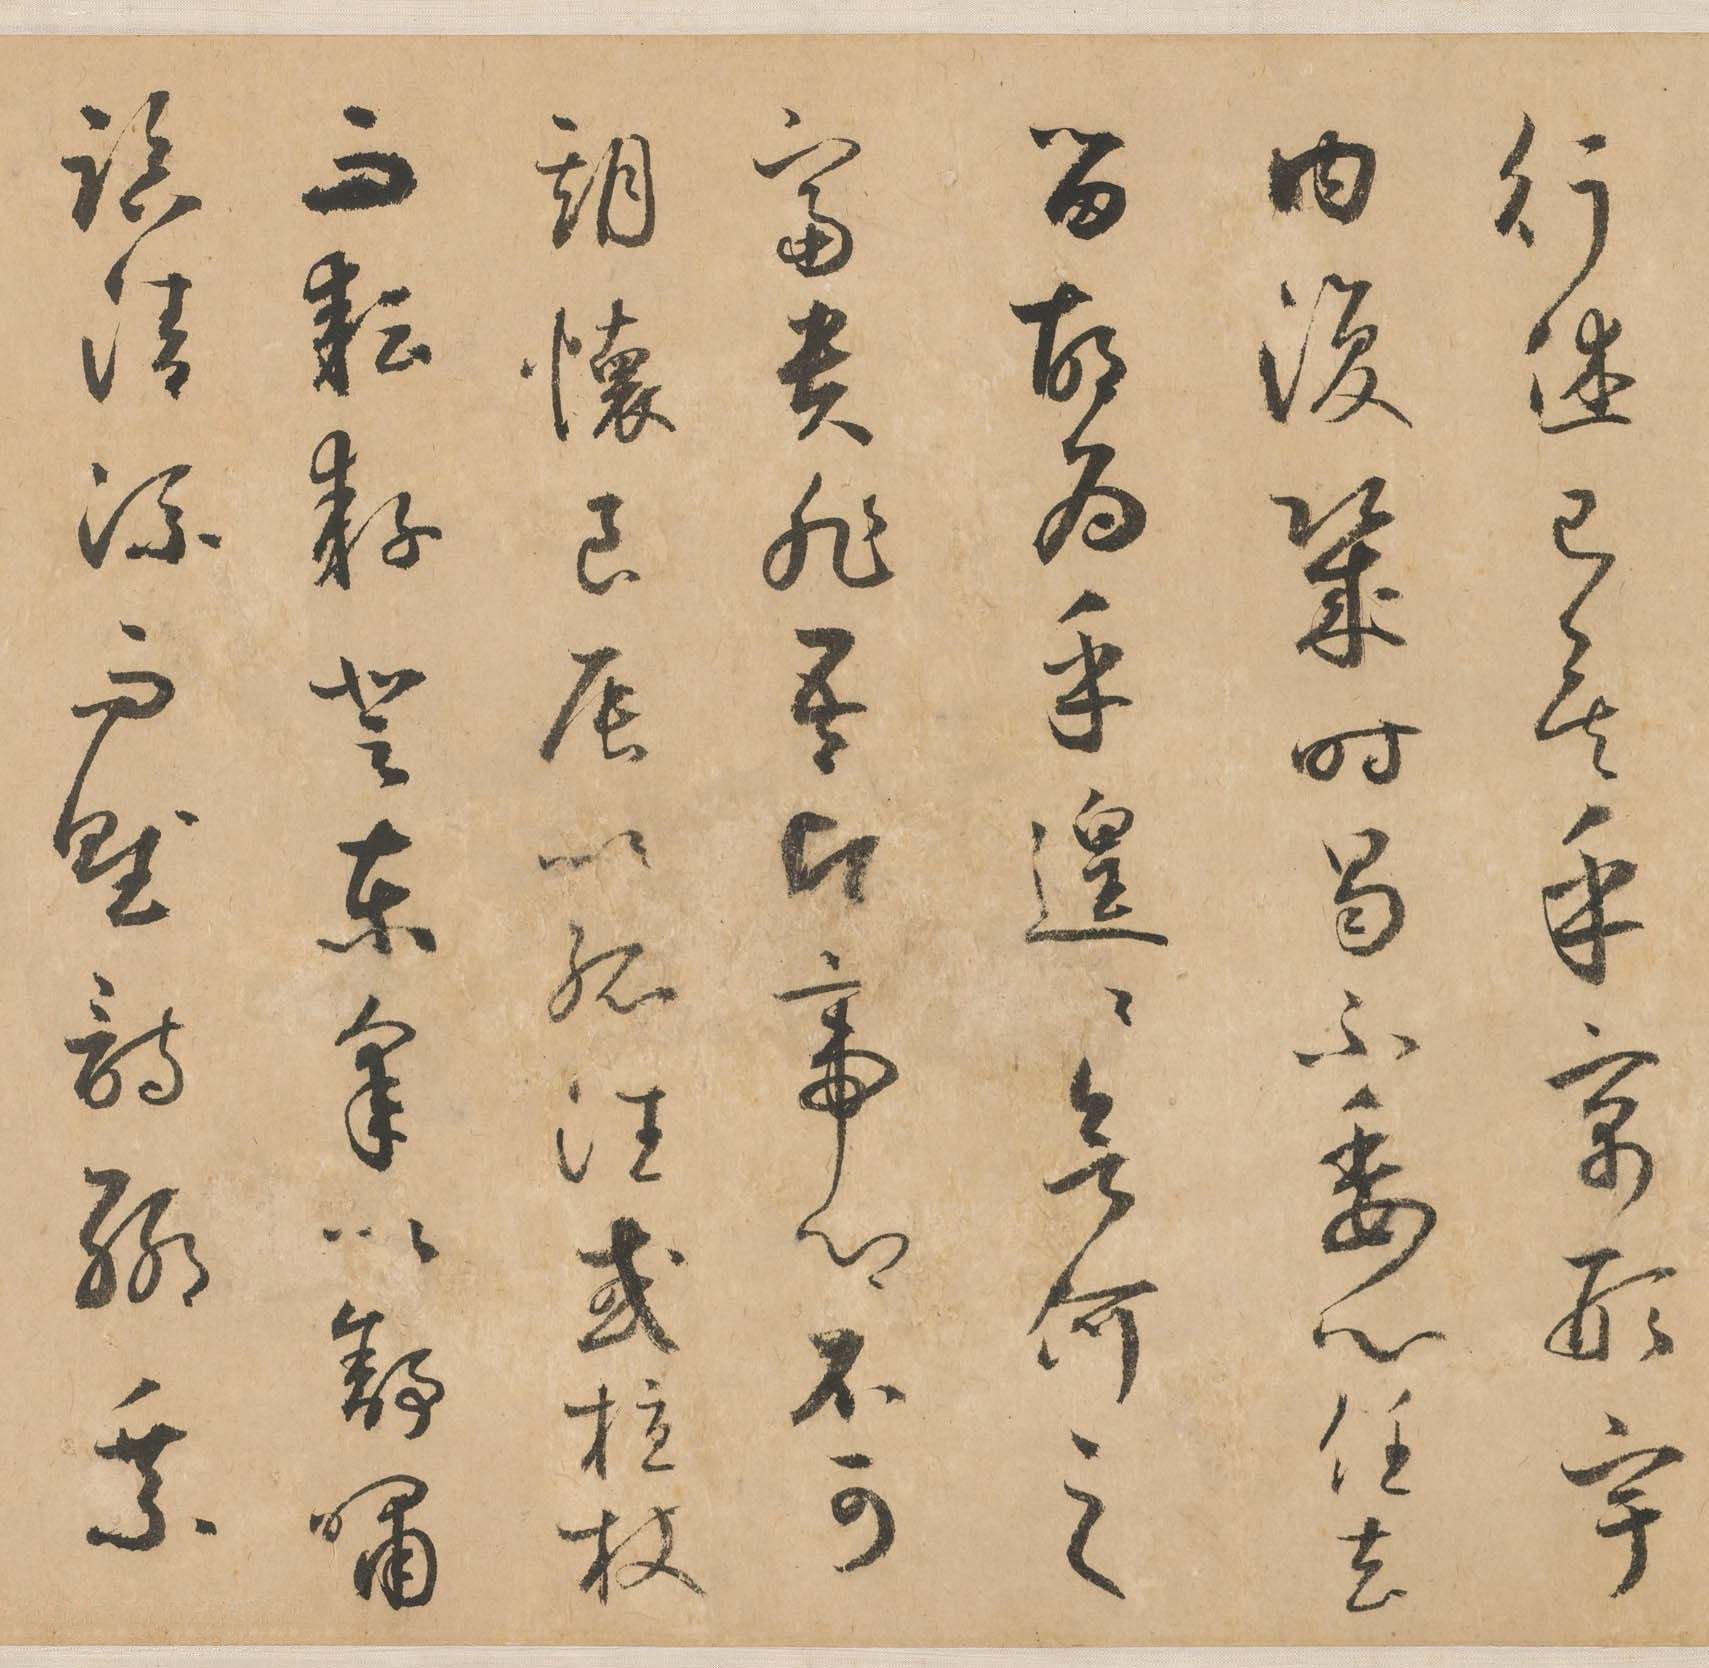 行已矣乎寓形宇
內復幾時曷不委心任去
留胡為乎遑〻欲何之
富貴非吾願帝鄉不可
期懷良辰以孤往或植杖
而耘耔登東皋以舒嘯
臨清流而賦詩聊乘